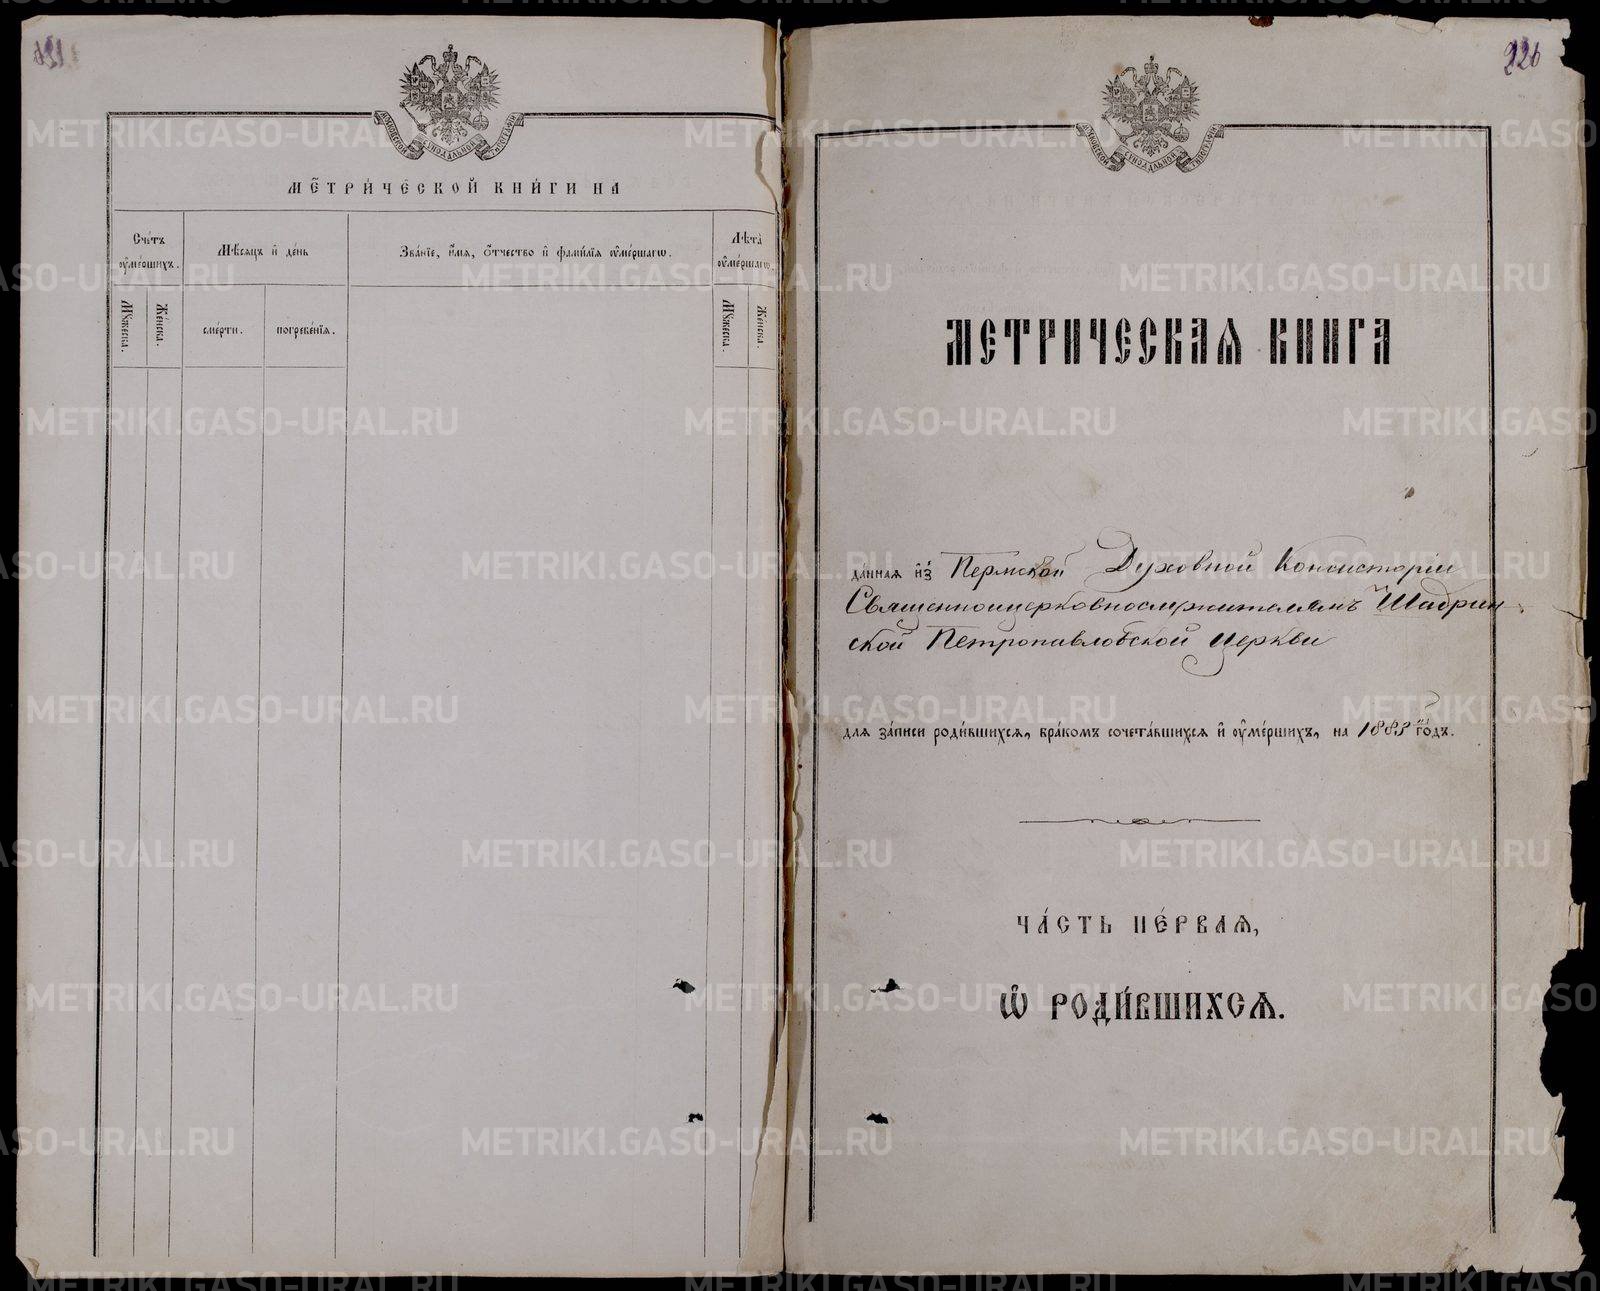 МЕТРИ́ЧЕСКОЙ КНИ́ГИ НА
Сче́тъ
оумершихъ.
Мѣ́сяцъ и де́нь
Зва́нїе, и́мя, о́тчество и фами́лїя оуме́ршагѡ.
Лѣта̀
оуме́ршагѡ
Мꙋжеска.
Же́нска.
сме́рти.
погребе́нїя.
Мꙋжеска.
Же́нска.
226
МОСКОВСКОЙ СѴНОДАЛЬНОЙ ТИПОГРАФІИ
МЕТРИЧЕСКАѦ КНИГА
да́нная из̾ Пермской Духовной Консисторіи
Священноицерковнослужителямъ Шадрин
ской Петропавловской церкви
для за́писи роди́вшихся, бра́комъ сочета́вшихся и оуме́ршихъ, на 1883й го́дъ.
ЧА́СТЬ ПЕ́РВАѦ,
Ѡ РОДИ́ВШИХСѦ.
METRIKI.GASO-URAL.RU